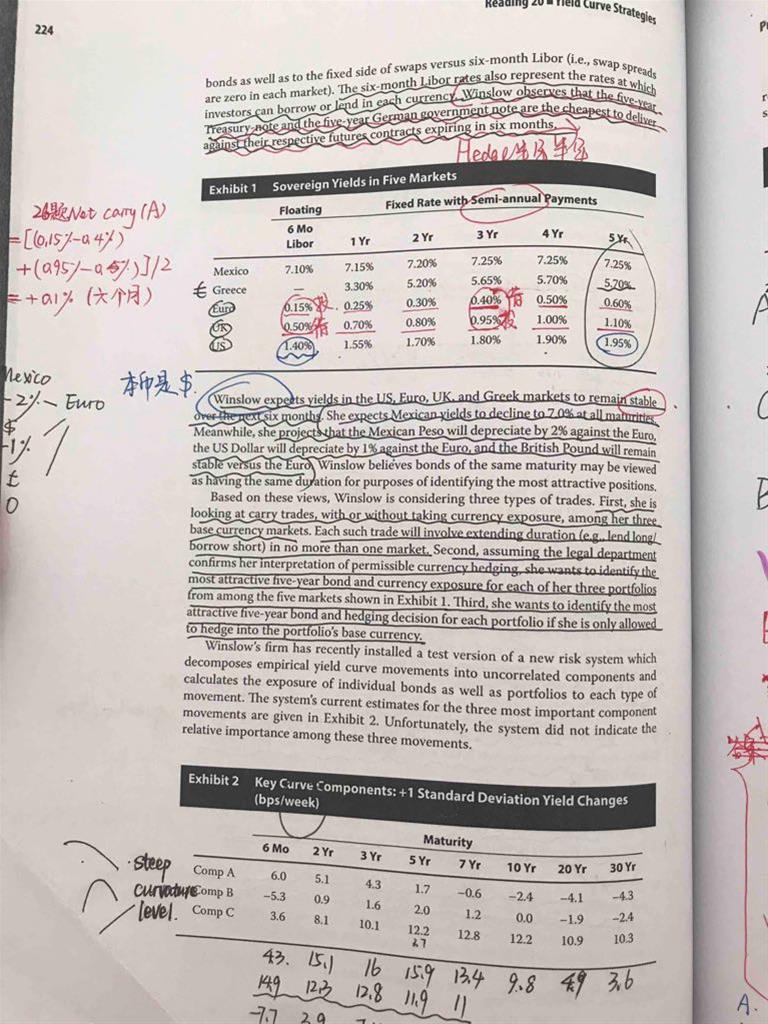 Reading 20 ■ Yield Curve Strategies
224
bonds as well as to the fixed side of swaps versus six-month Libor (i.e., swap spreads
are zero in each market). The six-month Libor rates also represent the rates at which
investors can borrow or lend in each currency. Winslow observes that the five-year
Treasury note and the five-year German government note are the cheapest to deliver
against their respective futures contracts expiring in six months.
Hedge
Exhibit 1 Sovereign Yields in Five Markets
Floating Fixed Rate with Semi-annual Payments
6 Mo
Libor 1 Yr 2 Yr 3 Yr 4 Yr 5 Yr
Mexico 7.10% 7.15% 7.20% 7.25% 7.25% 7.25%
€ Greece — 3.30% 5.20% 5.65% 5.70% 5.70%
Euro 0.15% 投 0.25% 0.30% 0.40% 借 0.50% 0.60%
UK 0.50% 借 0.70% 0.80% 0.95% 投 1.00% 1.10%
US 1.40% 1.55% 1.70% 1.80% 1.90% 1.95%
26题Net carry(A)
=[(0.15%-0.4%)
+(0.95%-0.5%)]/2
=+0.1% (六个月)
本币是$.
Mexico
-2% Euro
$
-1%
£
0
Winslow expects yields in the US, Euro, UK, and Greek markets to remain stable
over the next six months. She expects Mexican yields to decline to 7.0% at all maturities.
Meanwhile, she projects that the Mexican Peso will depreciate by 2% against the Euro,
the US Dollar will depreciate by 1% against the Euro, and the British Pound will remain
stable versus the Euro. Winslow believes bonds of the same maturity may be viewed
as having the same duration for purposes of identifying the most attractive positions.
Based on these views, Winslow is considering three types of trades. First, she is
looking at carry trades, with or without taking currency exposure, among her three
base currency markets. Each such trade will involve extending duration (e.g., lend long/
borrow short) in no more than one market. Second, assuming the legal department
confirms her interpretation of permissible currency hedging, she wants to identify the
most attractive five-year bond and currency exposure for each of her three portfolios
from among the five markets shown in Exhibit 1. Third, she wants to identify the most
attractive five-year bond and hedging decision for each portfolio if she is only allowed
to hedge into the portfolio's base currency.
Winslow's firm has recently installed a test version of a new risk system which
decomposes empirical yield curve movements into uncorrelated components and
calculates the exposure of individual bonds as well as portfolios to each type of
movement. The system's current estimates for the three most important component
movements are given in Exhibit 2. Unfortunately, the system did not indicate the
relative importance among these three movements.
Exhibit 2 Key Curve Components: +1 Standard Deviation Yield Changes
(bps/week)
Maturity
6 Mo 2 Yr 3 Yr 5 Yr 7 Yr 10 Yr 20 Yr 30 Yr
steep Comp A 6.0 5.1 4.3 1.7 −0.6 −2.4 −4.1 −4.3
curvature Comp B −5.3 0.9 1.6 2.0 1.2 0.0 −1.9 −2.4
level. Comp C 3.6 8.1 10.1 12.2 12.8 12.2 10.9 10.3
4.3. 15.1 16 15.9 13.4 9.8 4.9 3.6
14.9 12.3 12.8 11.9 11
-7.7 2.9
A.